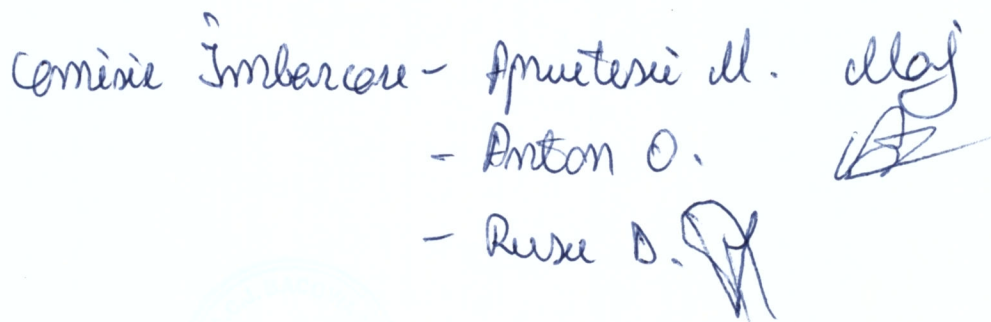 Comisie Îmbarcare - Apruetesei M.
- Anton O.
- Rusu D.